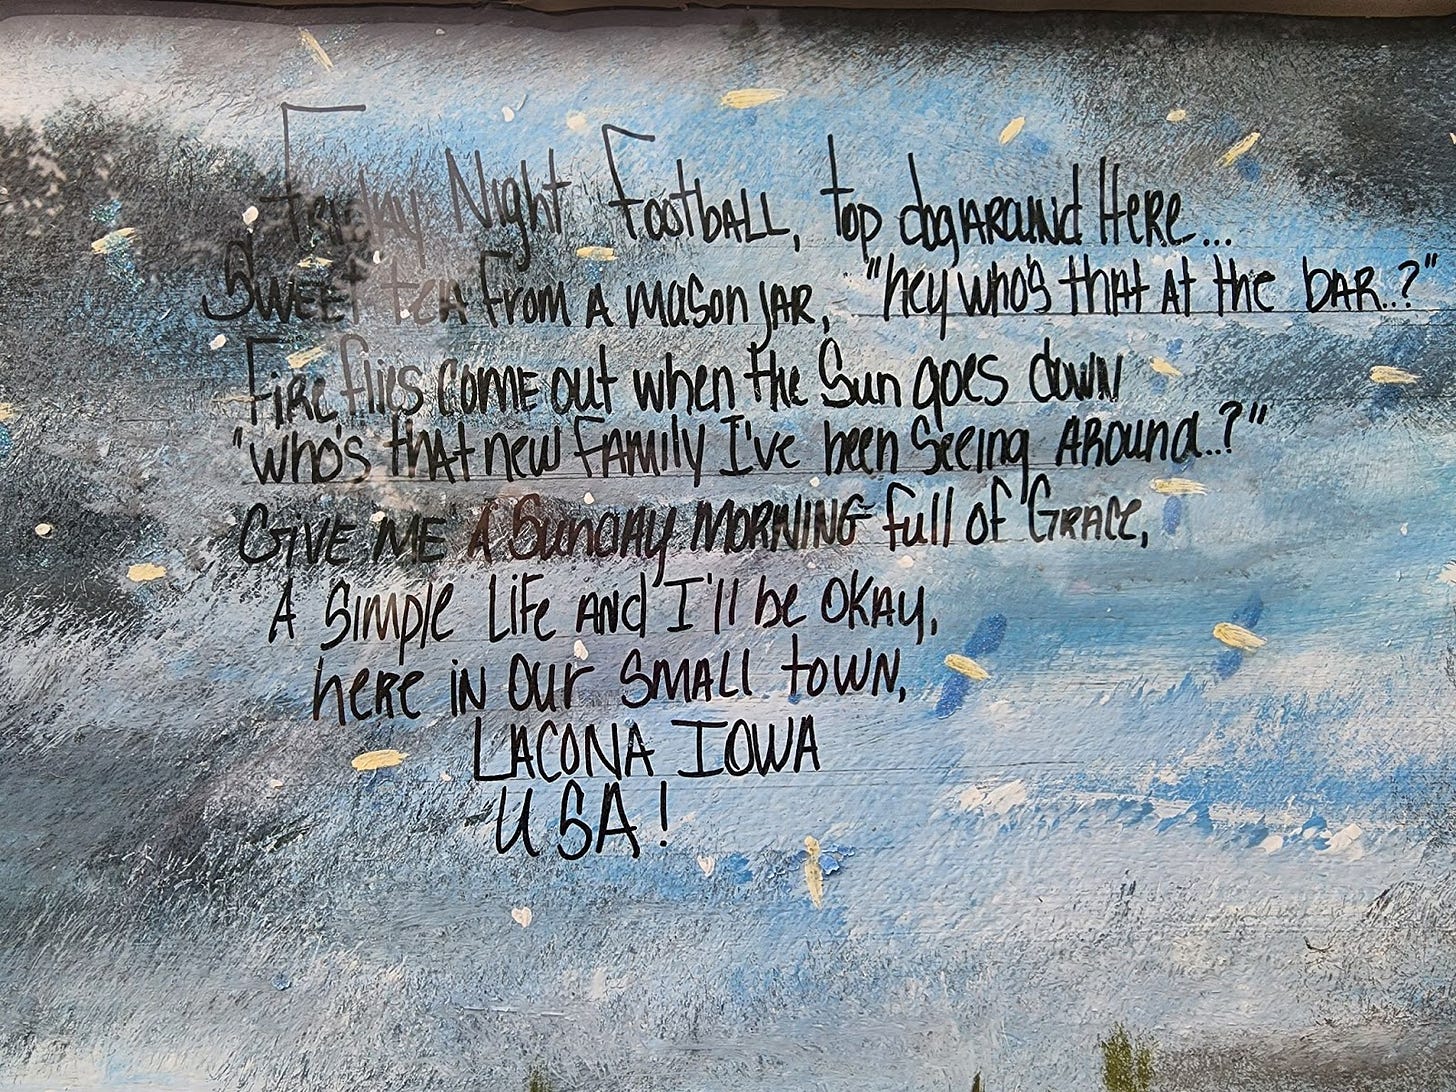 Friday Night Football, top dog around Here...
Sweet tea from a mason jar, "hey who's that at the bar..?"
Fire flies come out when the Sun goes down
"who's that new family I've been seeing around..?"
Give me a Sunday morning full of Grace,
A Simple Life and I'll be okay,
here in our small town,
LACONA IOWA
USA!